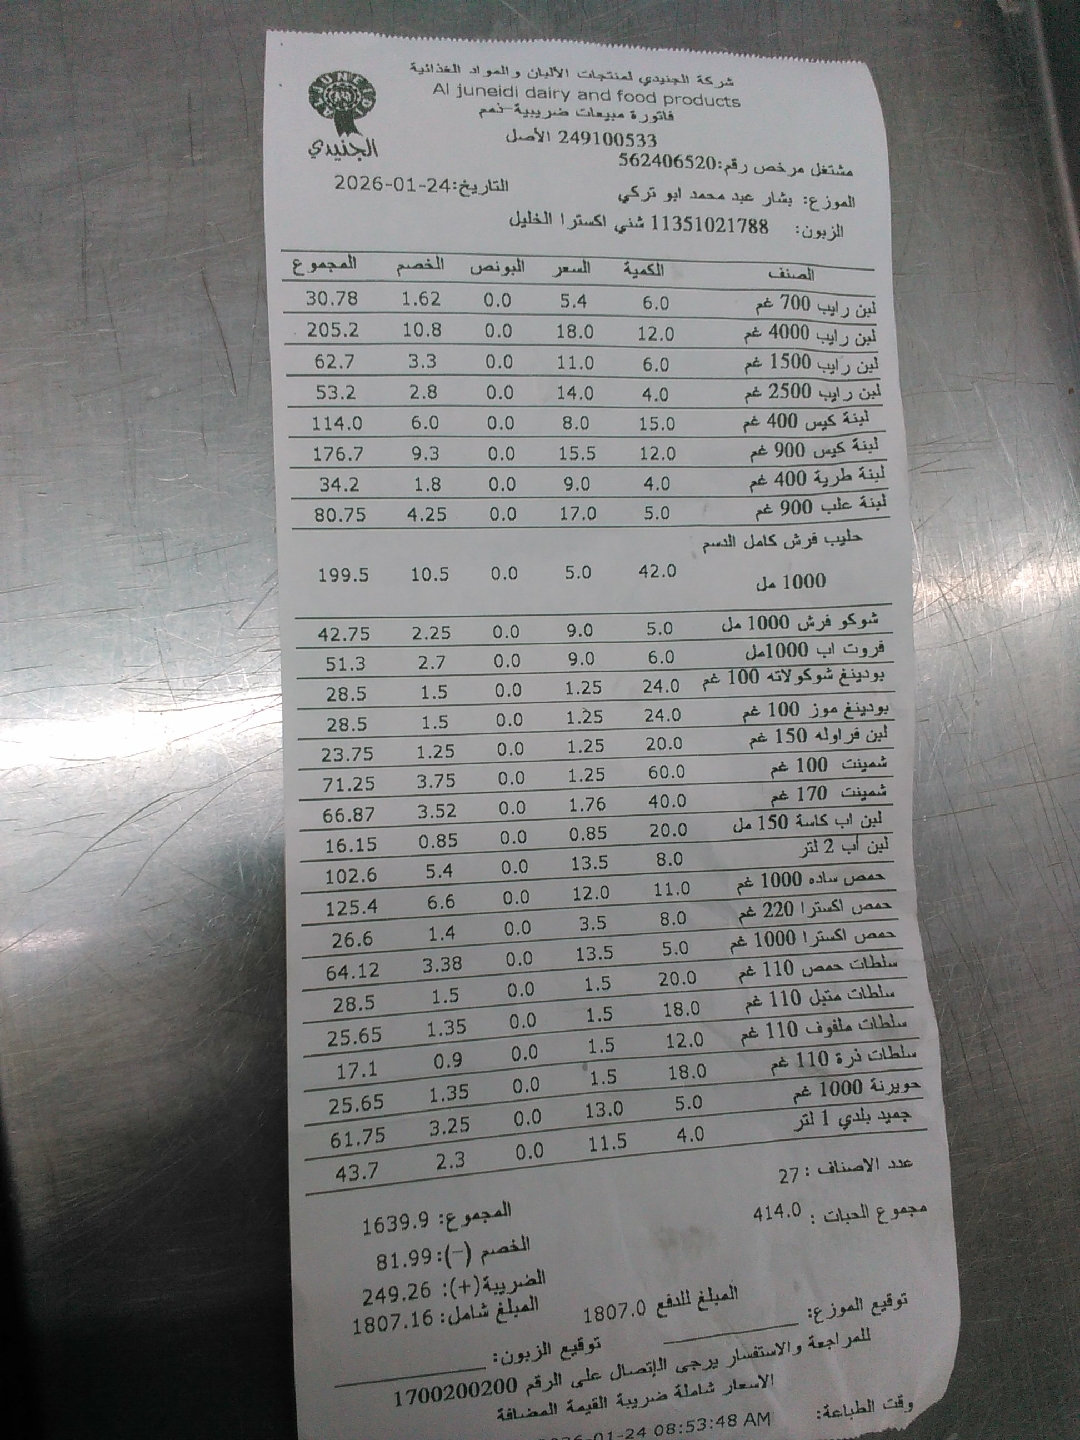 شركة الجنيدي لمنتجات الألبان والمواد الغذائية
Al juneidi dairy and food products
فاتورة مبيعات ضريبية-ذمم
249100533 الأصل
مشتغل مرخص رقم:562406520
الموزع: بشار عبد محمد ابو تركي التاريخ:24-01-2026
الزبون: 11351021788 شني اكسترا الخليل
JUNEIDI
الجنيدي
الصنف الكمية السعر البونص الخصم المجموع
لبن رايب 700 غم 6.0 5.4 0.0 1.62 30.78
لبن رايب 4000 غم 12.0 18.0 0.0 10.8 205.2
لبن رايب 1500 غم 6.0 11.0 0.0 3.3 62.7
لبن رايب 2500 غم 4.0 14.0 0.0 2.8 53.2
لبنة كيس 400 غم 15.0 8.0 0.0 6.0 114.0
لبنة كيس 900 غم 12.0 15.5 0.0 9.3 176.7
لبنة طرية 400 غم 4.0 9.0 0.0 1.8 34.2
لبنة علب 900 غم 5.0 17.0 0.0 4.25 80.75
حليب فرش كامل الدسم
1000 مل 42.0 5.0 0.0 10.5 199.5
شوكو فرش 1000 مل 5.0 9.0 0.0 2.25 42.75
فروت اب 1000مل 6.0 9.0 0.0 2.7 51.3
بودينغ شوكولاته 100 غم 24.0 1.25 0.0 1.5 28.5
بودينغ موز 100 غم 24.0 1.25 0.0 1.5 28.5
لبن فراوله 150 غم 20.0 1.25 0.0 1.25 23.75
شمينت 100 غم 60.0 1.25 0.0 3.75 71.25
شمينت 170 غم 40.0 1.76 0.0 3.52 66.87
لبن اب كاسة 150 مل 20.0 0.85 0.0 0.85 16.15
لبن أب 2 لتر 8.0 13.5 0.0 5.4 102.6
حمص ساده 1000 غم 11.0 12.0 0.0 6.6 125.4
حمص اكسترا 220 غم 8.0 3.5 0.0 1.4 26.6
حمص اكسترا 1000 غم 5.0 13.5 0.0 3.38 64.12
سلطات حمص 110 غم 20.0 1.5 0.0 1.5 28.5
سلطات متبل 110 غم 18.0 1.5 0.0 1.35 25.65
سلطات ملفوف 110 غم 12.0 1.5 0.0 0.9 17.1
سلطات ذرة 110 غم 18.0 1.5 0.0 1.35 25.65
حويرنة 1000 غم 5.0 13.0 0.0 3.25 61.75
جميد بلدي 1 لتر 4.0 11.5 0.0 2.3 43.7
عدد الاصناف : 27
مجموع الحبات : 414.0
المجموع: 1639.9
الخصم (-): 81.99
الضريبة(+): 249.26
المبلغ شامل: 1807.16
المبلغ للدفع 1807.0
توقيع الموزع:
توقيع الزبون:
للمراجعة والاستفسار يرجى الإتصال على الرقم 1700200200
الاسعار شاملة ضريبة القيمة المضافة
وقت الطباعة: 01-24 08:53:48 AM